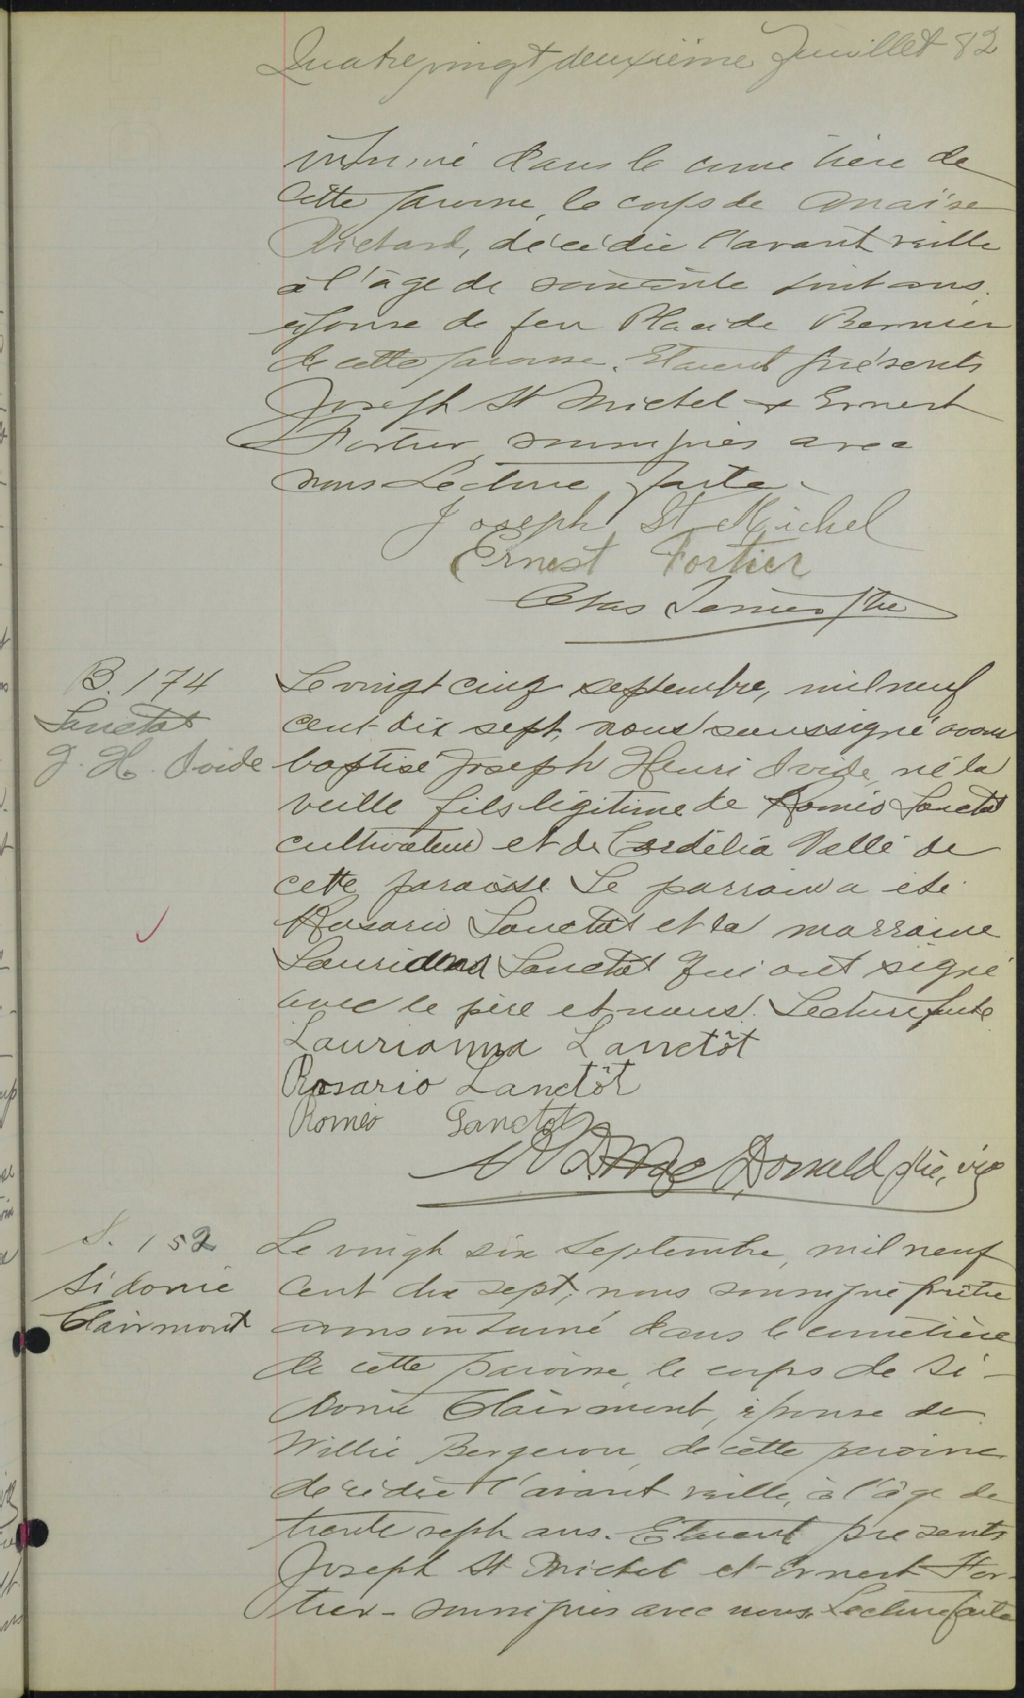 Quatrevingt deuxième feuillet 82
inhumé dans le cimetière de
cette paroisse, le corps de Anaïse
Richard, décédée l'avant veille
à l'âge de soixante huit ans,
épouse de feu Placide Bernier
de cette paroisse. Etaient présents
Joseph St Michel & Ernest
Fortier, soussignés avec
nous Lecture faite.
Joseph St Michel
Ernest Fortier
ptre
B. 174
Lanctot
J. H. Ovide
Le vingt cinq septembre, mil neuf
cent dix sept, nous soussigné avons
baptisé Joseph Henri Ovide, né la
veille fils légitime de Roméo Lanctot
cultivateur et de Cordélia Vallé de
cette paroisse. Le parrain a été
Rosario Lanctot et la marraine
Lauridana Lanctot qui ont signé
avec le père et nous. Lecture faite
Laurianna Lanctôt
Rosario Lanctôt
Roméo Lanctot
MacDonald ptre, vic
S. 152
Sidonie
Clairmont
Le vingt six septembre, mil neuf
cent dix sept, nous soussigné prêtre
avons inhumé dans le cimetière
de cette paroisse, le corps de Si-
donie Clairmont, épouse de
Willie Bergeron, de cette paroisse
décédée l'avant veille, à l'âge de
trente sept ans. Etaient présents
Joseph St Michel et Ernest For-
tier - soussignés avec nous. Lecture faite